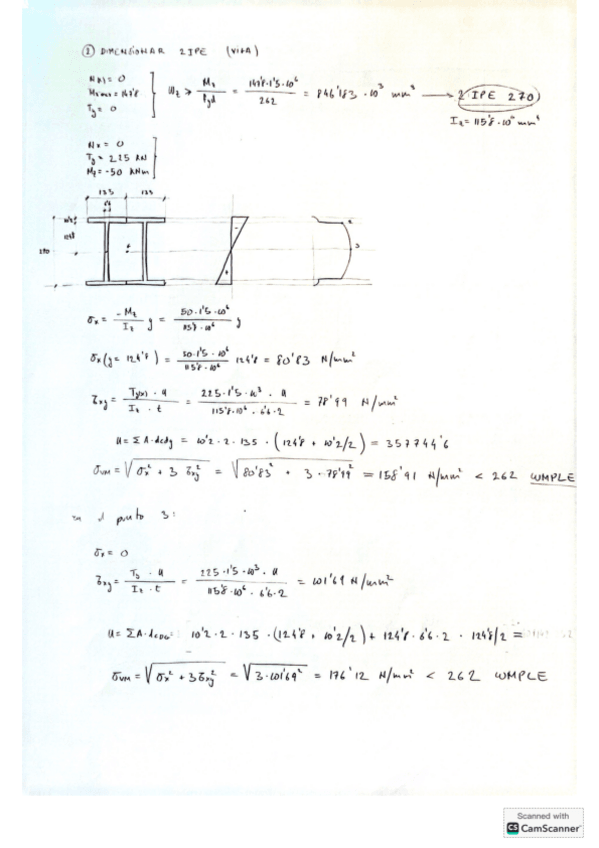 ② DIMENSIONAR 2 IPE (VIGA)
N(x) = 0
Mz max = 147'8
Ty = 0
Wz ≥ Mz / fyd = 147'8·1'5·10⁶ / 262 = 846'183 · 10³ mm³ → 2 IPE 270
Iz = 115'8·10⁶ mm⁴
Nx = 0
Ty = 225 kN
Mz = -50 kNm
135 135
10'2
124'8
270
σx = -Mz / Iz y = 50·1'5·10⁶ / 115'8·10⁶ y
σx (y = 124'8) = 50·1'5·10⁶ / 115'8·10⁶ 124'8 = 80'83 N/mm²
τxy = Ty(x) · u / Iz · t = 225·1'5·10³ · u / 115'8·10⁶ · 6'6·2 = 78'99 N/mm²
u = Σ A·dcdg = 10'2·2·135 · (124'8 + 10'2/2) = 357744'6
σVM = √σx² + 3 τxy² = √80'83² + 3·78'99² = 158'91 N/mm² < 262 CUMPLE
el punto 3:
σx = 0
τxy = Ty · u / Iz · t = 225·1'5·10³ · u / 115'8·10⁶ · 6'6·2 = 101'69 N/mm²
u = Σ A·dcdg = 10'2·2·135 · (124'8 + 10'2/2) + 124'8·6'6·2 · 124'8/2 =
σVM = √σx² + 3τxy² = √3·101'69² = 176'12 N/mm² < 262 CUMPLE
Scanned with
CS CamScanner